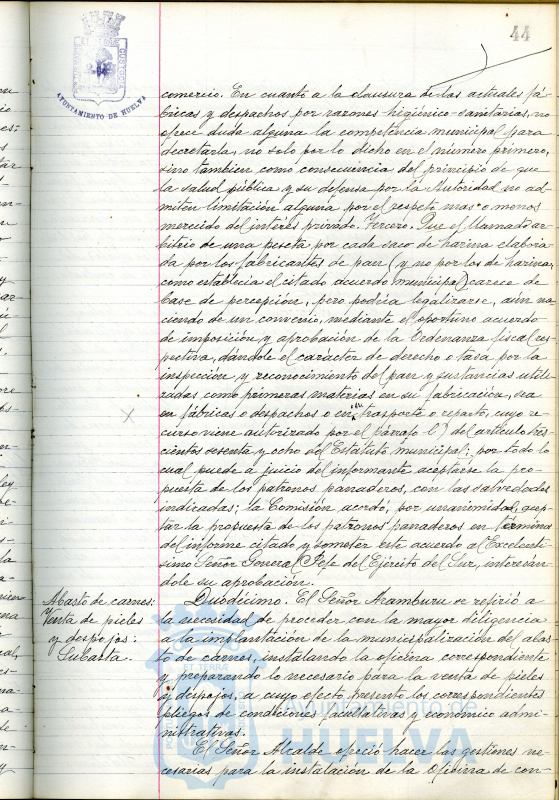 44
AYUNTAMIENTO DE HUELVA
comercio. En cuanto a la clausura de las actuales fá-
bricas y despachos por razones higiénico-sanitarias, no
ofrece duda alguna la competencia municipal para
decretarla, no solo por lo dicho en el número primero,
sino tambien como consecuencia del principio de que
la salud pública y su defensa por la Autoridad no ad-
miten limitación alguna por el respeto mas o menos
merecido del interés privado. Tercero. Que el llamado ar-
bitrio de una peseta por cada saco de harina elabora-
da por los fabricantes de pan (y no por los de harina,
como establecia el citado acuerdo municipal) carece de
base de percepción, pero podría legalizarse, aún na-
ciendo de un convenio, mediante el oportuno acuerdo
de imposición y aprobación de la Ordenanza fiscal res-
pectiva, dandole el carácter de derecho o tasa por la
inspección y reconocimiento del pan y sustancias utili-
zadas como primeras materias en su fabricación, sea
en fábricas o despachos o en su trasporte o reparto, cuyo re-
curso viene autorizado por el párrafo l) del articulo tres-
cientos sesenta y ocho del Estatuto municipal; por todo lo
cual puede a juicio del informante aceptarse la pro-
puesta de los patronos panaderos, con las salvedades
indicadas; la Comisión acordó, por unanimidad, acep-
tar la propuesta de los patronos panaderos en términos
del informe citado y someter este acuerdo al Excelentí-
simo Señor General Jefe del Ejército del Sur, interesan-
dole su aprobación.
Abasto de carnes:
Venta de pieles
y despojos:
Subasta.
Duodécimo. El Señor Aramburu se refirió a
la necesidad de proceder con la mayor diligencia
a la implantación de la municipalización del abas-
to de carnes, instalando la oficina correspondiente
y preparando lo necesario para la venta de pieles
y despojos, a cuyo efecto presentó los correspondientes
pliegos de condiciones facultativas y económico admi-
nistrativas.
El Señor Alcalde ofreció hacer las gestiones ne-
cesarias para la instalación de la Oficina de con-
Ayuntamiento de
HUELVA